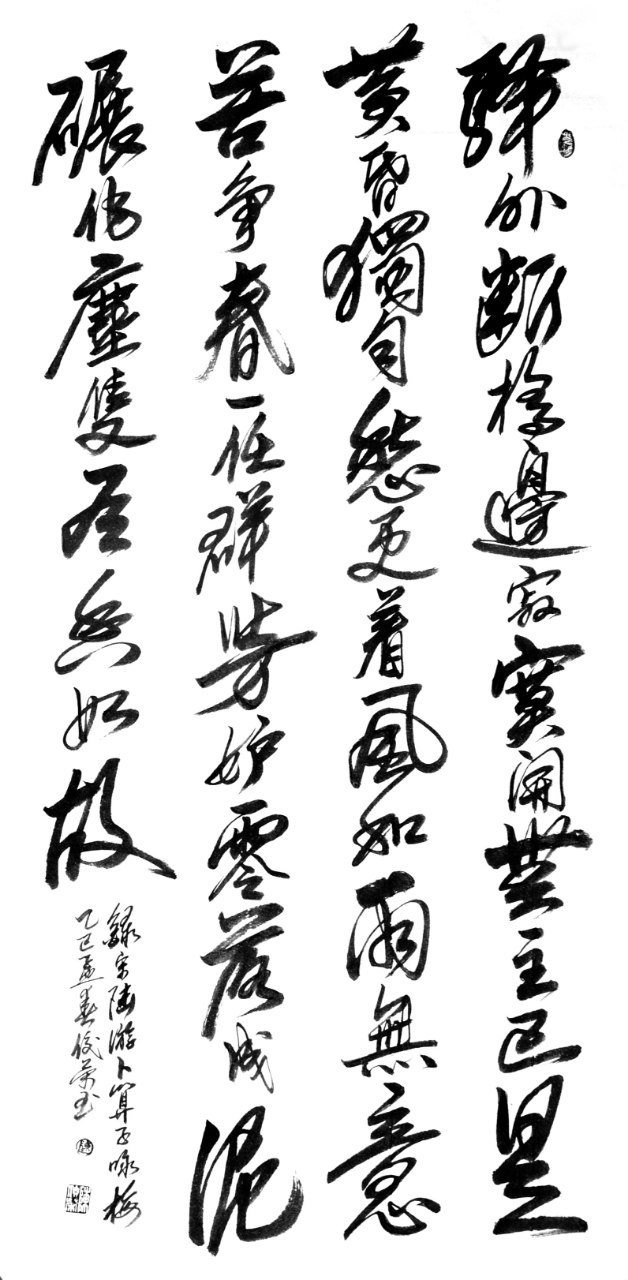 驛外斷橋邊寂寞開無主已是
黄昏獨自愁更着風和雨無意
苦爭春一任群芳妒零落成泥
碾作塵隻有香如故
錄宋陸游卜算子咏梅
乙巳孟春俊荣书